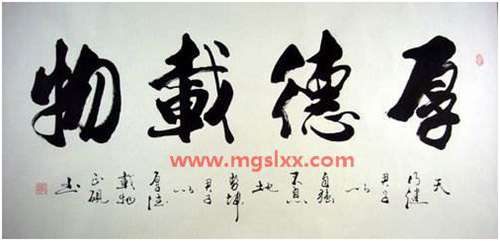 厚德載物
www.mgslxx.com
天行健君子以自強不息地勢坤君子以厚德載物